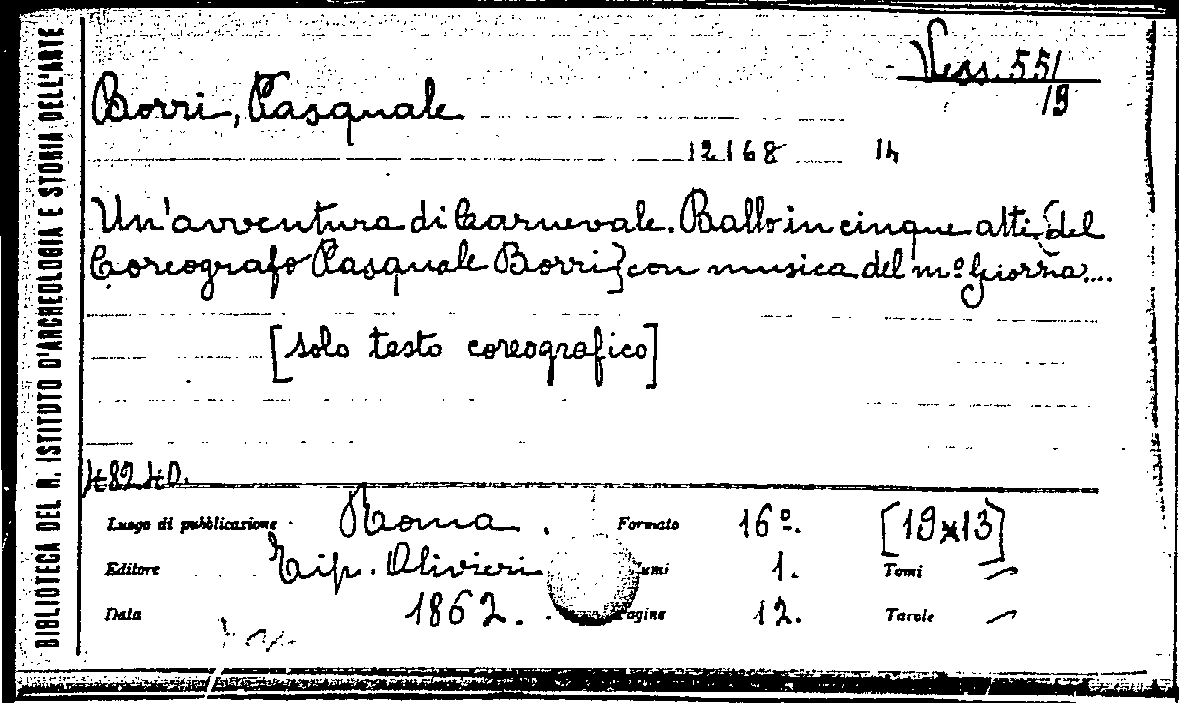 BIBLIOTECA DEL R. ISTITUTO D'ARCHEOLOGIA E STORIA DELL'ARTE
Vess. 551/19
Borri, Pasquale
12168 14
Un'avventura di Carnevale. Ballo in cinque atti {del
Coreografo Pasquale Borri} con musica del mº Giorza....
[solo testo coreografico]
48240.
Luogo di pubblicazione Roma. Formato 16º. [19x13]
Editore Tip. Olivieri umi 1. Tomi
Data 1862. Pagine 12. Tavole